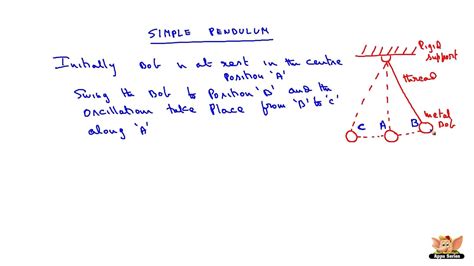 SIMPLE PENDULUM
Initially Bob is at rest in the centre
Position 'A'
Swing the Bob to Position 'B' and the
Oscillations take Place from 'B' to 'C'
along 'A'
Rigid
support
thread
metal
Bob
C A B
Appu Series